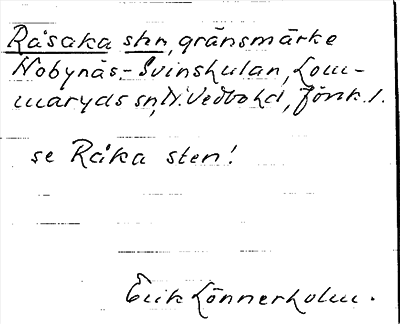 Råsaka sten, gränsmärke
Nobynäs-Svinskulan, Lom-
maryds sn, N. Vedbo hd, Jönk. l.
se Råka sten!
Erik Lönnerholm.